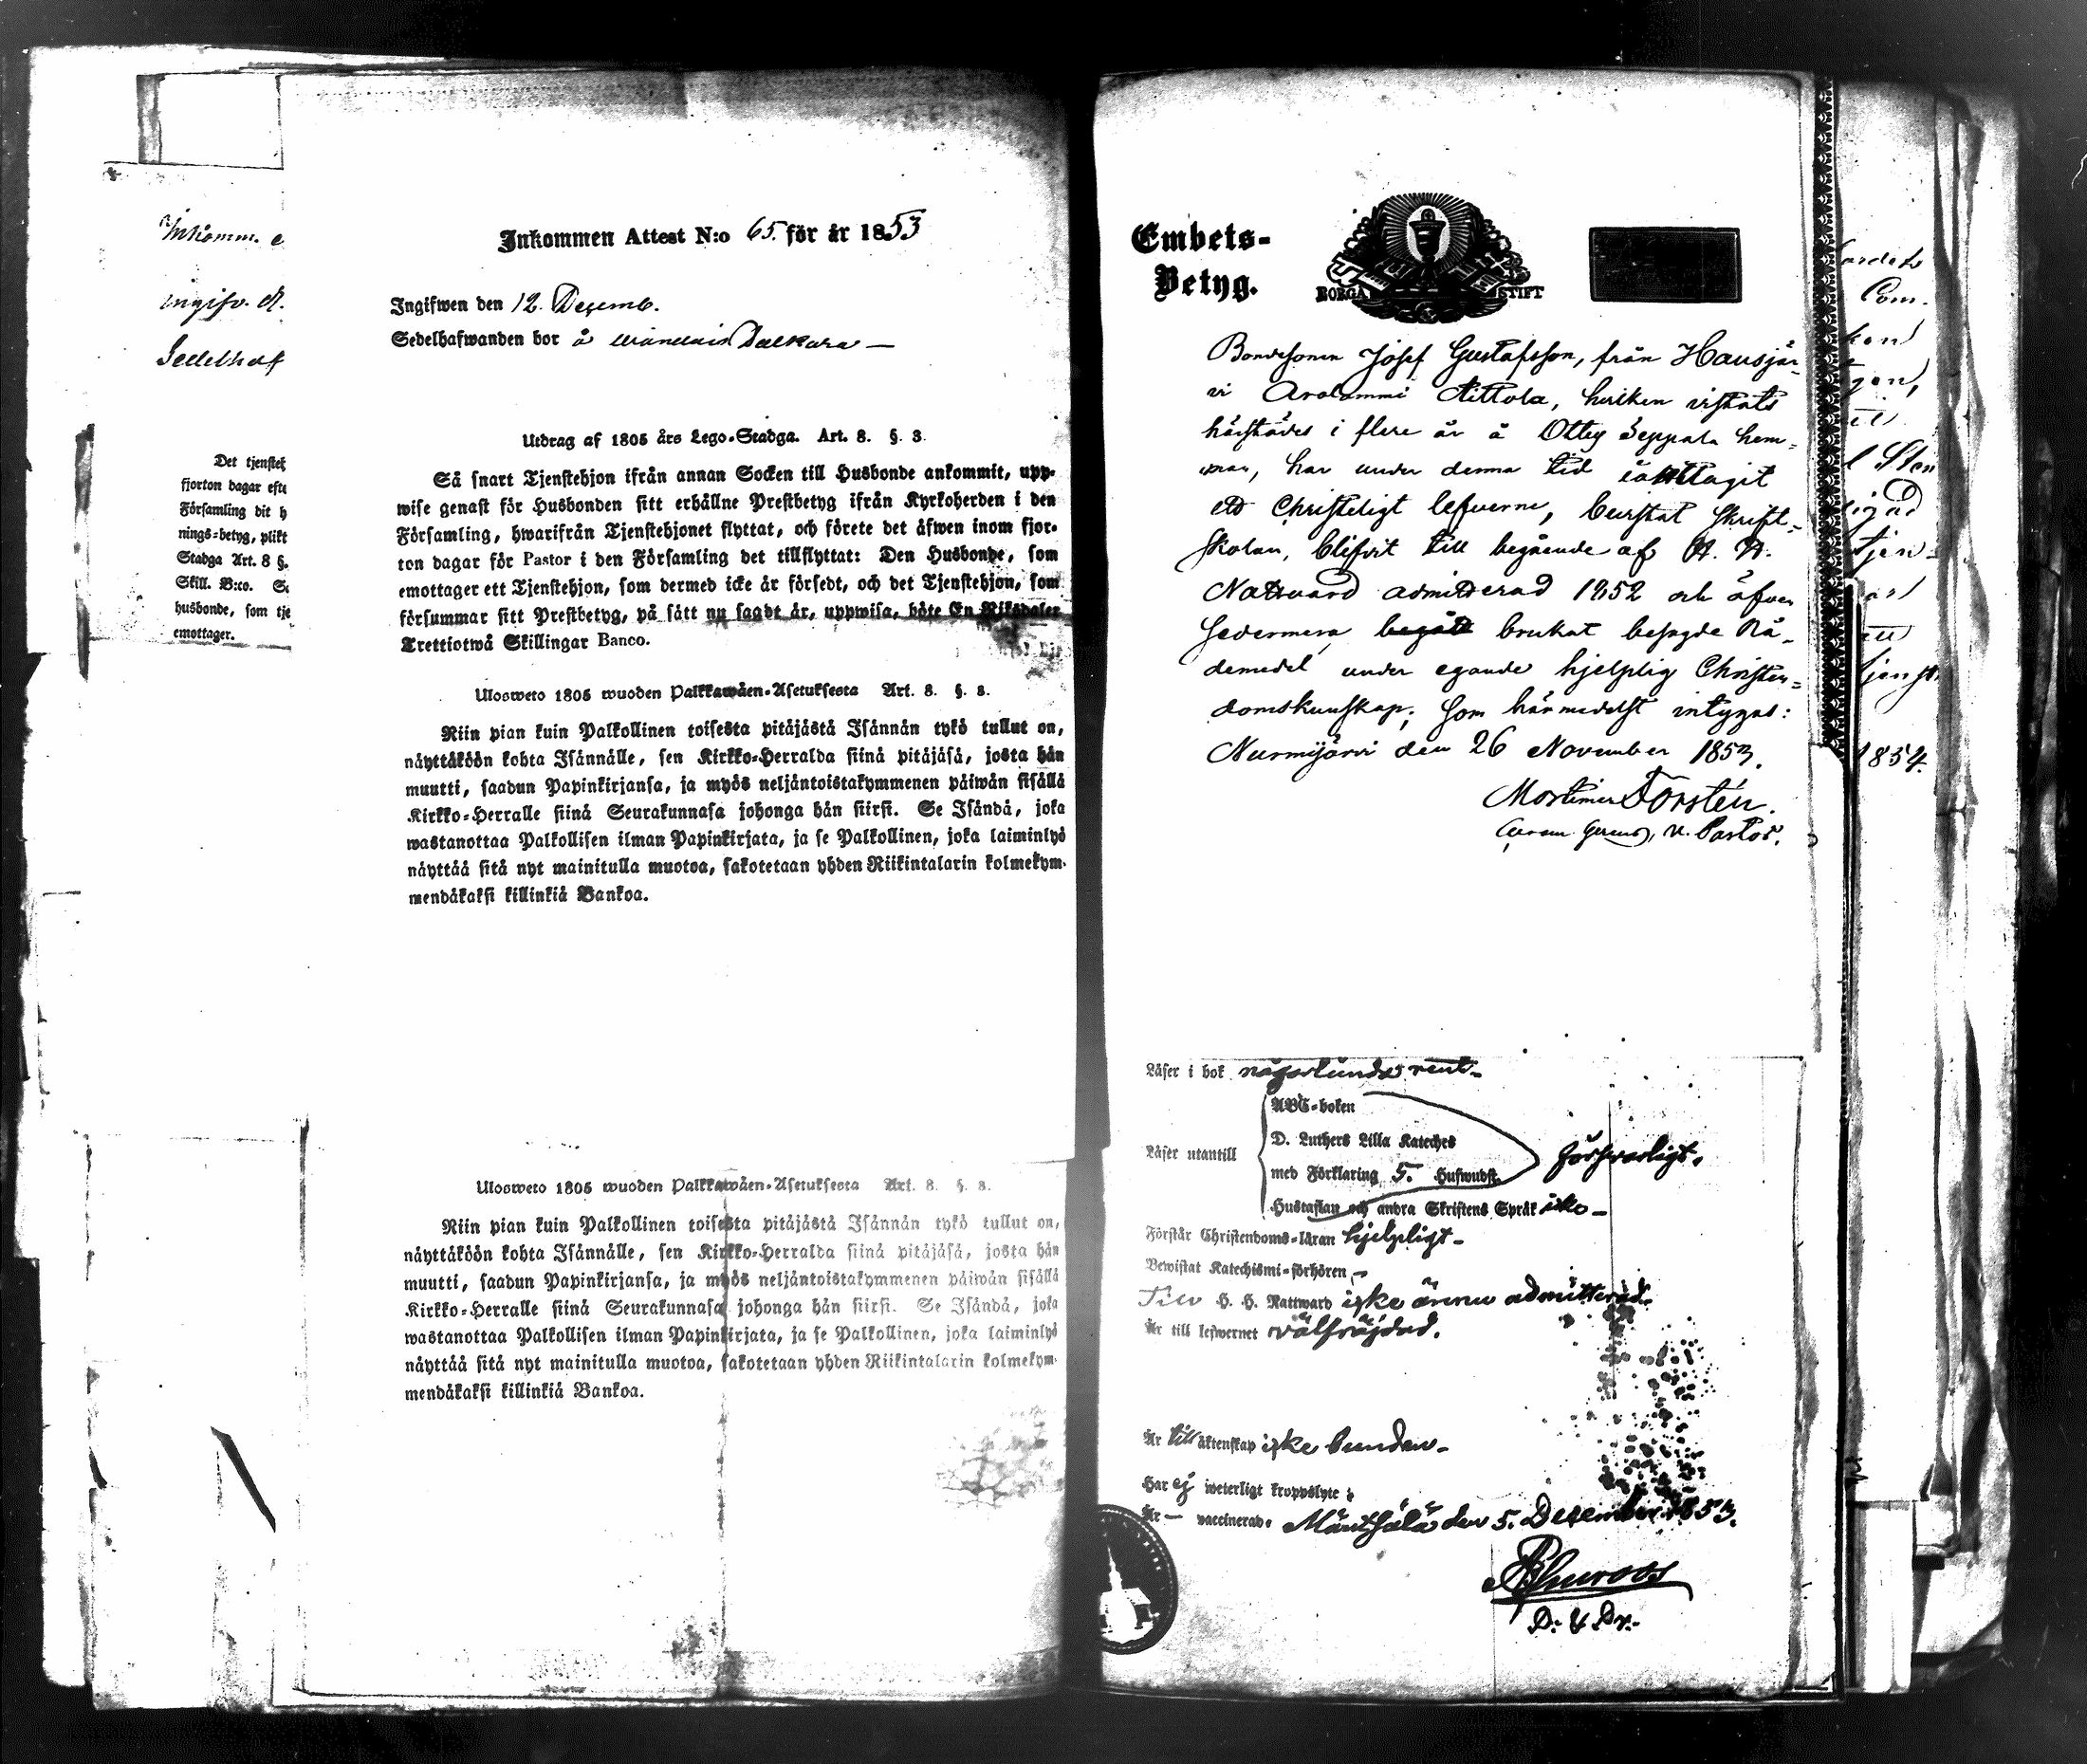 Inkomm. e
ingifv. d.
Sedelhaf
Det tjenstef
fjorton dagar efte
Församling dit h
nings-betyg, plikt
Stadga Art. 8 §.
Skill. B:co. Se
husbonde, som tje
emottager.
Inkommen Attest N:o 65. för år 1853
Ingifwen den 12. Decemb.
Sedelhafwanden bor å
Utdrag af 1805 års Lego-Stadga. Art. 8. §. 3.
Så snart Tjenstehjon ifrån annan Socken till Husbonde ankommit, upp-
wise genast för Husbonden sitt erhållne Prestbetyg ifrån Kyrkoherden i den
Församling, hwarifrån Tjenstehjonet flyttat, och förete det äfwen inom fjor-
ton dagar för Pastor i den Församling det tillflyttat: Den Husbonde, som
emottager ett Tjenstehjon, som dermed icke är försedt, och det Tjenstehjon, som
försummar sitt Prestbetyg, på sätt nu sagdt är, uppwisa, böte En Riksdaler
Trettiotwå Skillingar Banco.
Ulosweto 1805 wuoden Palkkawäen-Asetuksesta Art. 8. §. 3.
Niin pian kuin Palkollinen toisesta pitäjästä Isännän tykö tullut on,
näyttäköön kohta Isännälle, sen Kirkko-Herralda siinä pitäjäsä, josta hän
muutti, saadun Papinkirjansa, ja myös neljäntoistakymmenen päiwän sisällä
Kirkko-Herralle siinä Seurakunnasa johonga hän siirsi. Se Isändä, joka
wastanottaa Palkollisen ilman Papinkirjata, ja se Palkollinen, joka laiminlyö
näyttää sitä nyt mainitulla muotoa, sakotetaan yhden Riikintalarin kolmekym-
mendäkaksi killinkiä Bankoa.
Ulosweto 1805 wuoden Palkkawäen-Asetuksesta Art. 8. §. 3.
Niin pian kuin Palkollinen toisesta pitäjästä Isännän tykö tullut on,
näyttäköön kohta Isännälle, sen Kirkko-Herralda siinä pitäjäsä, josta hän
muutti, saadun Papinkirjansa, ja myös neljäntoistakymmenen päiwän sisällä
Kirkko-Herralle siinä Seurakunnasa johonga hän siirsi. Se Isändä, joka
wastanottaa Palkollisen ilman Papinkirjata, ja se Palkollinen, joka laiminlyö
näyttää sitä nyt mainitulla muotoa, sakotetaan yhden Riikintalarin kolmekym-
mendäkaksi killinkiä Bankoa.
Embets-
Betyg.
BORGÅ STIFT
Bondesonen Josef Gustafsson, från Hausjär-
vi Arolammi Aittola, hvilken vistats
härstädes i flere år å Ottey Seppälä hem-
man, har under denna tid iakttagit
ett Christeligt lefverne, bevistat Skrift-
skolan, blifvit till begående af H. H.
Nattvard admitterad 1852 och äfven
sedermera begått brukat besagde Nå-
demedel under egande hjelplig Christen-
domskunskap; som härmedelst intygas:
Nurmijärvi den 26 November 1853.
Mortimer Forstén.
v. Pastor.
Läser i bok någorlunda rent-
Läser utantill
ABC-boken
D. Luthers Lilla Kateches
med Förklaring 5. Hufwudst.
Hustaflan och andra Skriftens Språk icke-
försvarligt.
Förstår Christendoms-läran hjelpligt-
Bewistat Katechismi-förhören -
Till H. H. Nattward icke ännu admitterad.
Är till lefwernet välfräjdad.
Är till äktenskap icke bunden-
Har ej weterligt kroppslyte;
Är - vaccinerad. Mäntsälä den 5. December 1853.
1854.